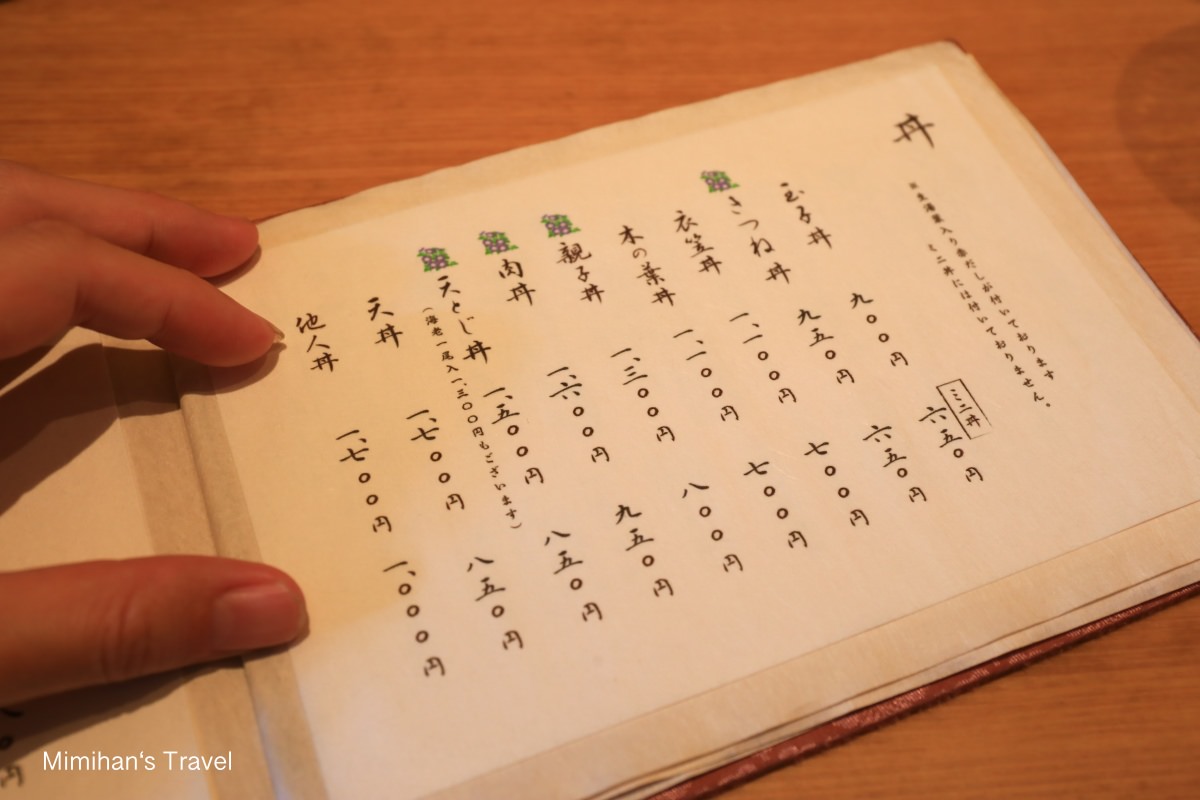 丼
※生海苔入り だしが付いております
ミニ丼には付いておりません。
ミニ丼
玉子丼 九〇〇円 六五〇円
きつね丼 九五〇円 六五〇円
衣笠丼 一、一〇〇円 七〇〇円
木の葉丼 一、一〇〇円 七〇〇円
親子丼 一、三〇〇円 八〇〇円
肉丼 一、六〇〇円 九五〇円
天とじ丼 一、五〇〇円 八五〇円
(海老一尾入一、三〇〇円もございます)
天丼 一、七〇〇円 八五〇円
他人丼 一、七〇〇円 一、〇〇〇円
Mimihan's Travel